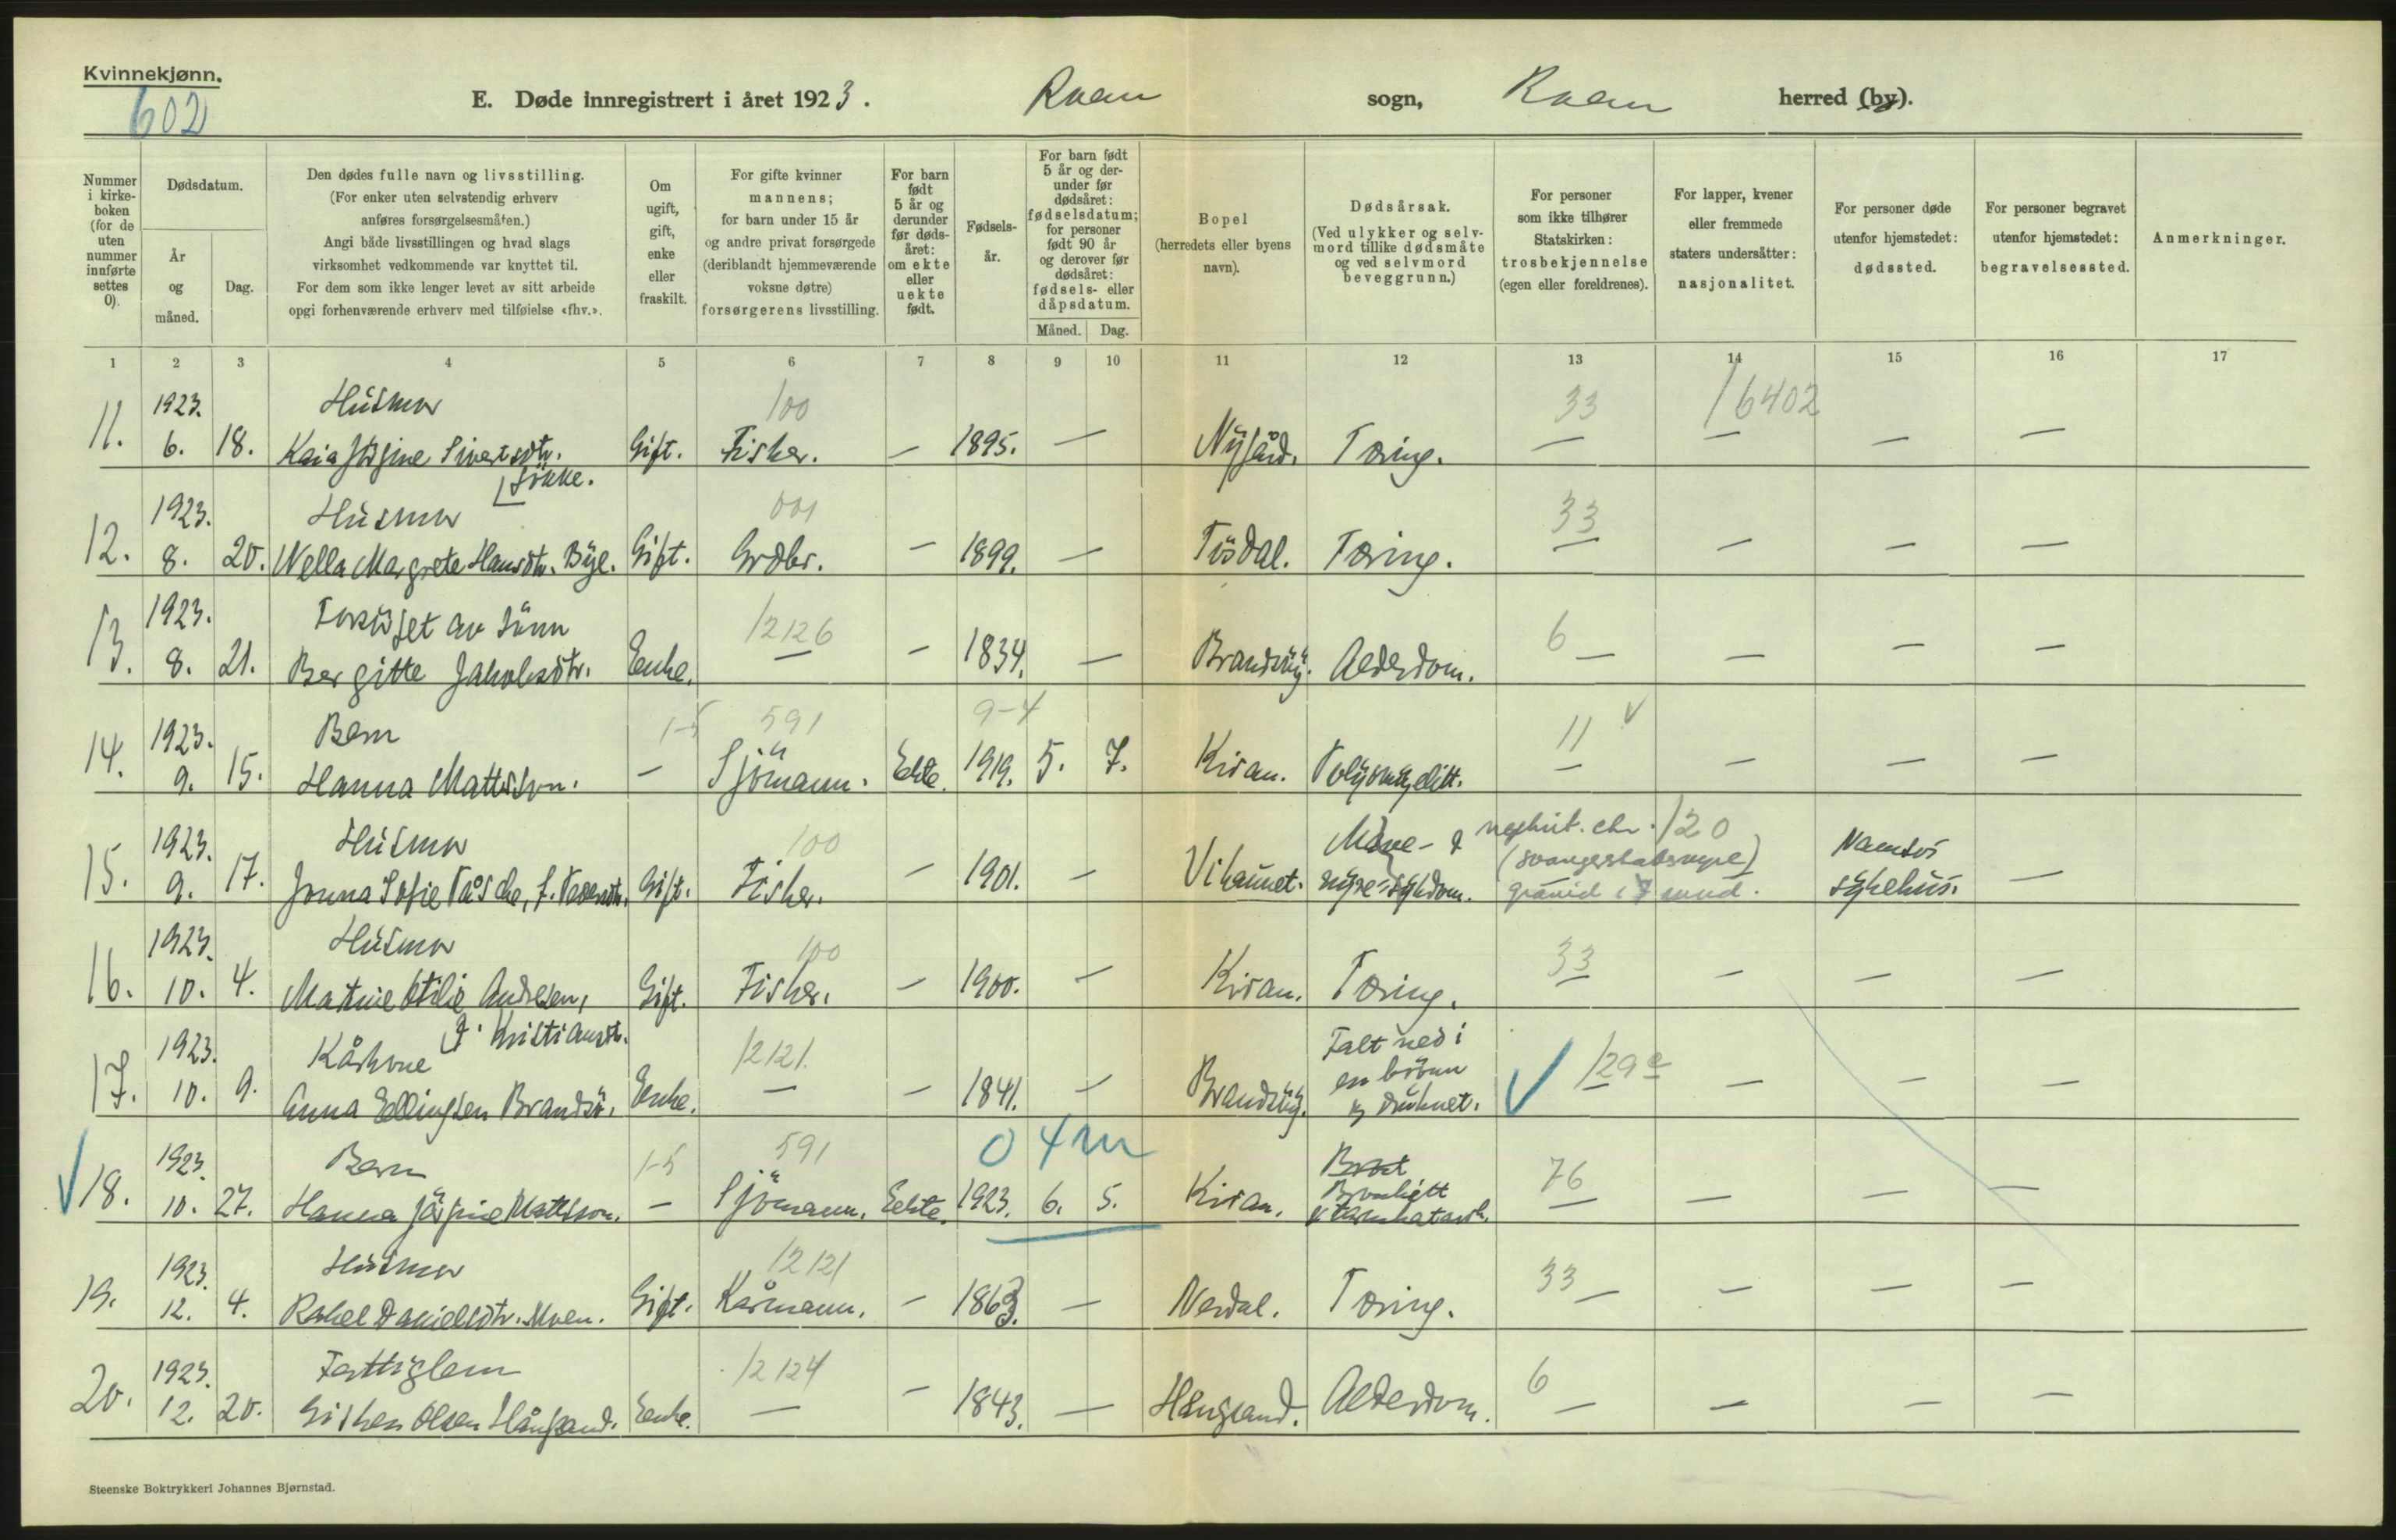 Kvinnekjønn.
602
E. Døde innregistrert i året 1923.
sogn,
herred (by).
Nummer i kirkeboken (for de uten nummer innførte settes 0).
Dødsdatum.
År og måned.
Dag.
Den dødes fulle navn og livsstilling.
(For enker uten selvstendig erhverv
anføres forsørgelsesmåten.)
Angi både livsstillingen og hvad slags
virksomhet vedkommende var knyttet til.
For dem som ikke lenger levet av sitt arbeide
opgi forhenværende erhverv med tilføielse «fhv.».
Om ugift, gift, enke eller fraskilt.
For gifte kvinner
mannens;
for barn under 15 år
og andre privat forsørgede
(deriblandt hjemmeværende
voksne døtre)
forsørgerens livsstilling.
For barn født 5 år og derunder før dødsåret: om ekte eller uekte født.
Fødselsår.
For barn født 5 år og derunder før dødsåret: fødselsdatum; for personer født 90 år og derover før dødsåret: fødsels- eller dåpsdatum.
Måned. Dag.
Bopel
(herredets eller byens
navn).
Dødsårsak.
(Ved ulykker og selv-
mord tillike dødsmåte
og ved selvmord
beveggrunn.)
For personer
som ikke tilhører
Statskirken:
trosbekjennelse
(egen eller foreldrenes).
For lapper, kvener
eller fremmede
staters undersåtter:
nasjonalitet.
For personer døde
utenfor hjemstedet:
dødssted.
For personer begravet
utenfor hjemstedet:
begravelsessted.
Anmerkninger.
1 2 3 4 5 6 7 8 9 10 11 12 13 14 15 16 17
1923. Husmor 100 33 16402
11. 6. 18. Kaia Sivertsdtr. Gift. Fisker. — 1895. — Nygård. Tæring. — — — —
1923. Husmor 001 33
12. 8. 20. Nella Margrete Hansdtr. Bye. Gift. Grdbr. — 1899. — Tøsdal. Tæring. — — — —
1923. av sønn 12126 6
13. 8. 21. Bergitte Jakobsdtr. Enke. — — 1834. — Alderdom. — — — —
1923. Barn 1-5 591 9-4 11
14. 9. 15. Hanna Mattisson. — Sjömann. Ekte. 1919. 5. 7. Kiran. — — — —
1923. Husmor 100 120
15. 9. 17. Gift. Fisker. — 1901. — nyresykdom. gravid i 7 mnd. Namsos sykehus. —
1923. Husmor 100 33
16. 10. 4. Andresen, f. Kristiansdtr. Gift. Fisker. — 1900. — Kiran. Tæring. — — — —
1923. Kårkone 12121 Falt ned i en brönn 129
17. 10. 9. Anna Ellingsen Brandsö. Enke. — — 1841. — og druknet. — — — —
1923. Barn 1-5 591 0 4 m 76
18. 10. 27. Hanna Mattisson. — Sjömann. Eekte. 1923. 6. 5. Kiran. Bronkitt — — — —
1923. Husmor 12121 33
19. 12. 4. Rakel Danielsdtr. Moen. Gift. Kårmann. — 1863. — Nerdal. Tæring. — — — —
1923. Fattiglem 12124 6
20. 12. 20. Olsen Enke. — — 1843. — Alderdom. — — — —
Steenske Boktrykkeri Johannes Bjørnstad.